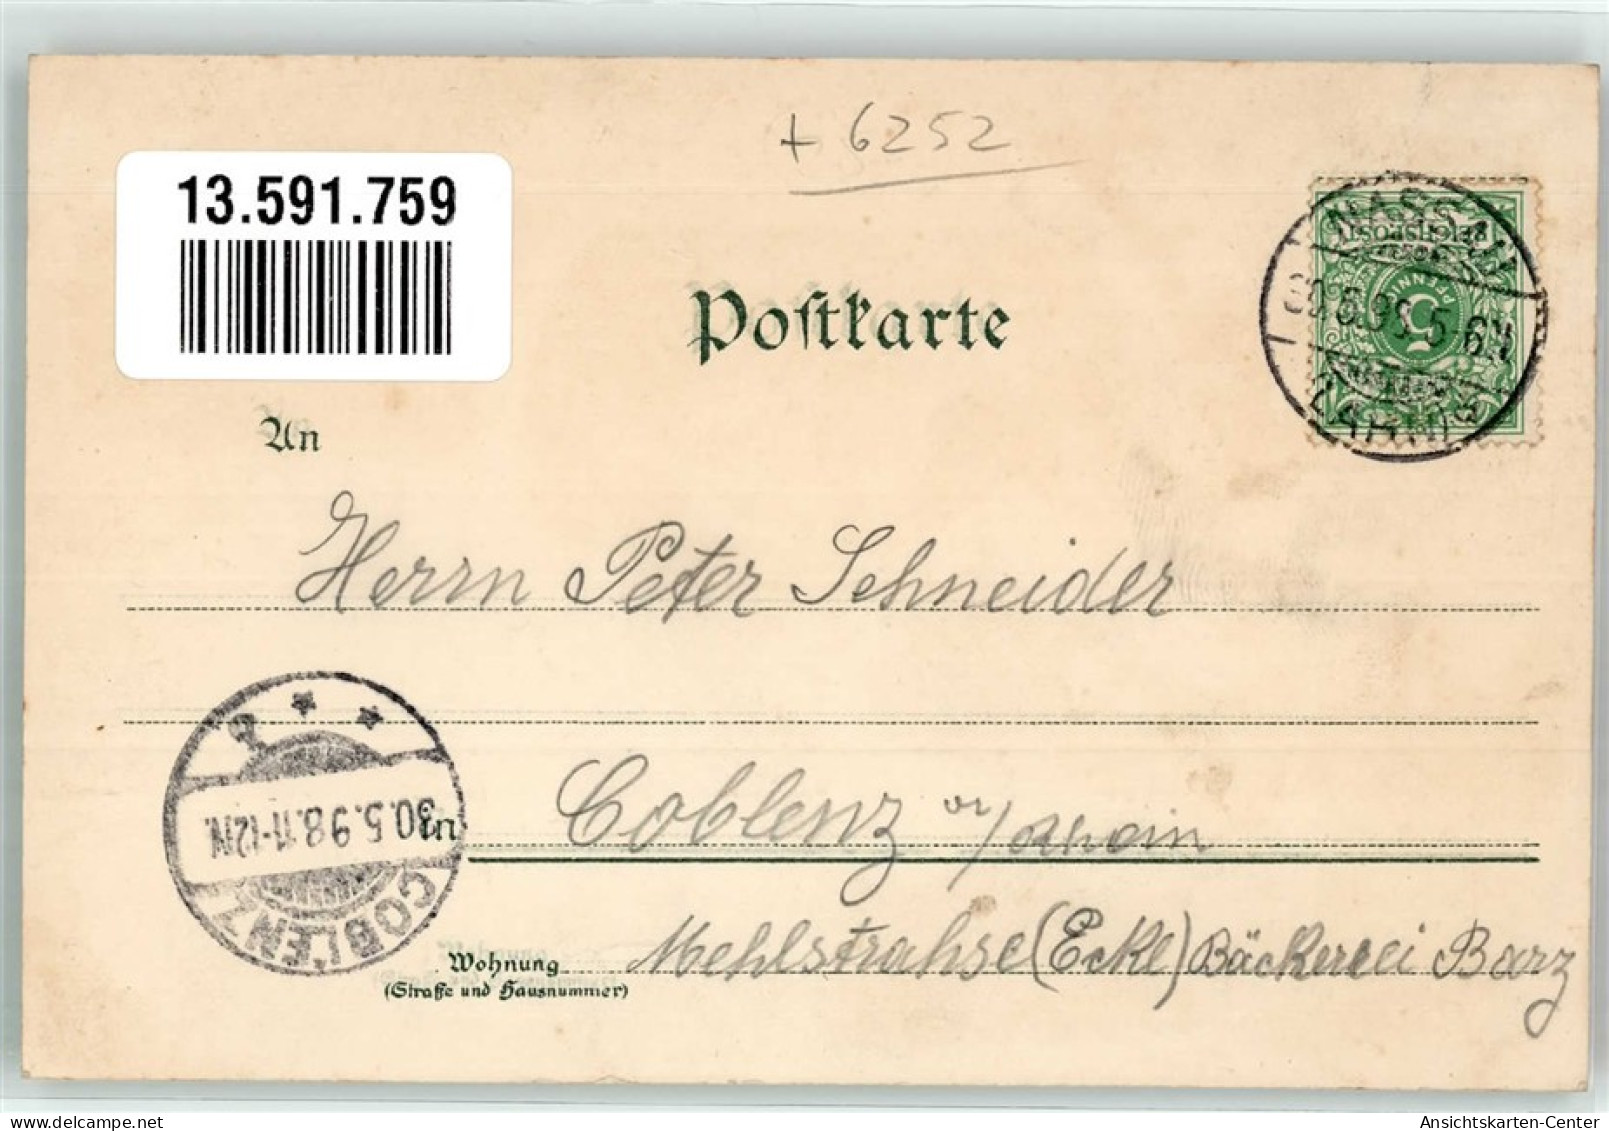 + 6252
13.591.759
NASSAU
5.98.5-6N
(LAHN)
REICHSPOST
5
PFENNIG
Postkarte
An
Herrn Peter Schneider
30.5.98.11-12N.
COBLENZ
in
Coblenz a/Rhein
Wohnung
(Straße und Hausnummer)
Mehlstrahse (Eckl) Bäckerei Barz
Ansichtskarten-Center